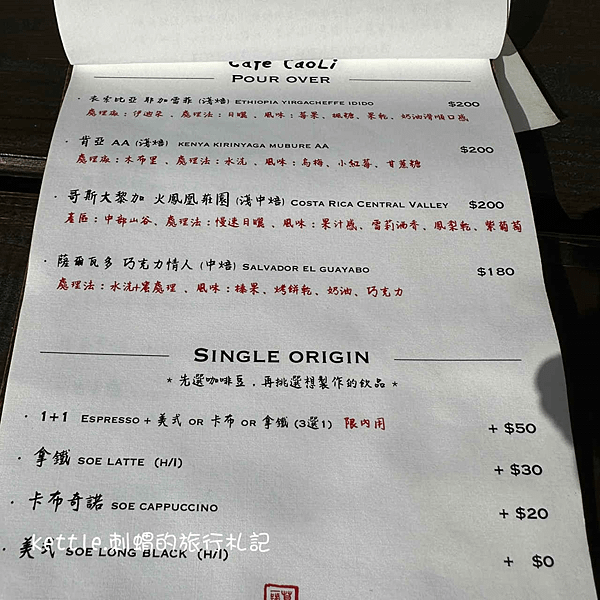 Cafe CaoLi
POUR OVER
· 衣索比亞 耶加雪菲 (淺焙) ETHIOPIA YIRGACHEFFE IDIDO $200
處理廠：伊迪朵 、處理法：日曬 、風味：莓果、楓糖、果乾、奶油滑順口感
· 肯亞 AA (淺焙) KENYA KIRINYAGA MUBURE AA $200
處理廠：木布里 、處理法：水洗 、風味：烏梅、小紅莓、甘蔗糖
· 哥斯大黎加 火鳳凰莊園 (淺中焙) COSTA RICA CENTRAL VALLEY $200
產區：中部山谷、處理法：慢速日曬 、風味：果汁感、雪莉酒香、鳳梨乾、紫葡萄
· 薩爾瓦多 巧克力情人 (中焙) SALVADOR EL GUAYABO $180
處理法：水洗+蜜處理 、風味：榛果、烤餅乾、奶油、巧克力
SINGLE ORIGIN
* 先選咖啡豆，再挑選想製作的飲品 *
· 1+1 ESPRESSO + 美式 OR 卡布 OR 拿鐵 (3選1) 限內用 + $50
· 拿鐵 SOE LATTE (H/I) + $30
· 卡布奇諾 SOE CAPPUCCINO + $20
· 美式 SOE LONG BLACK (H/I) + $0
kettle.刺蝟的旅行札記